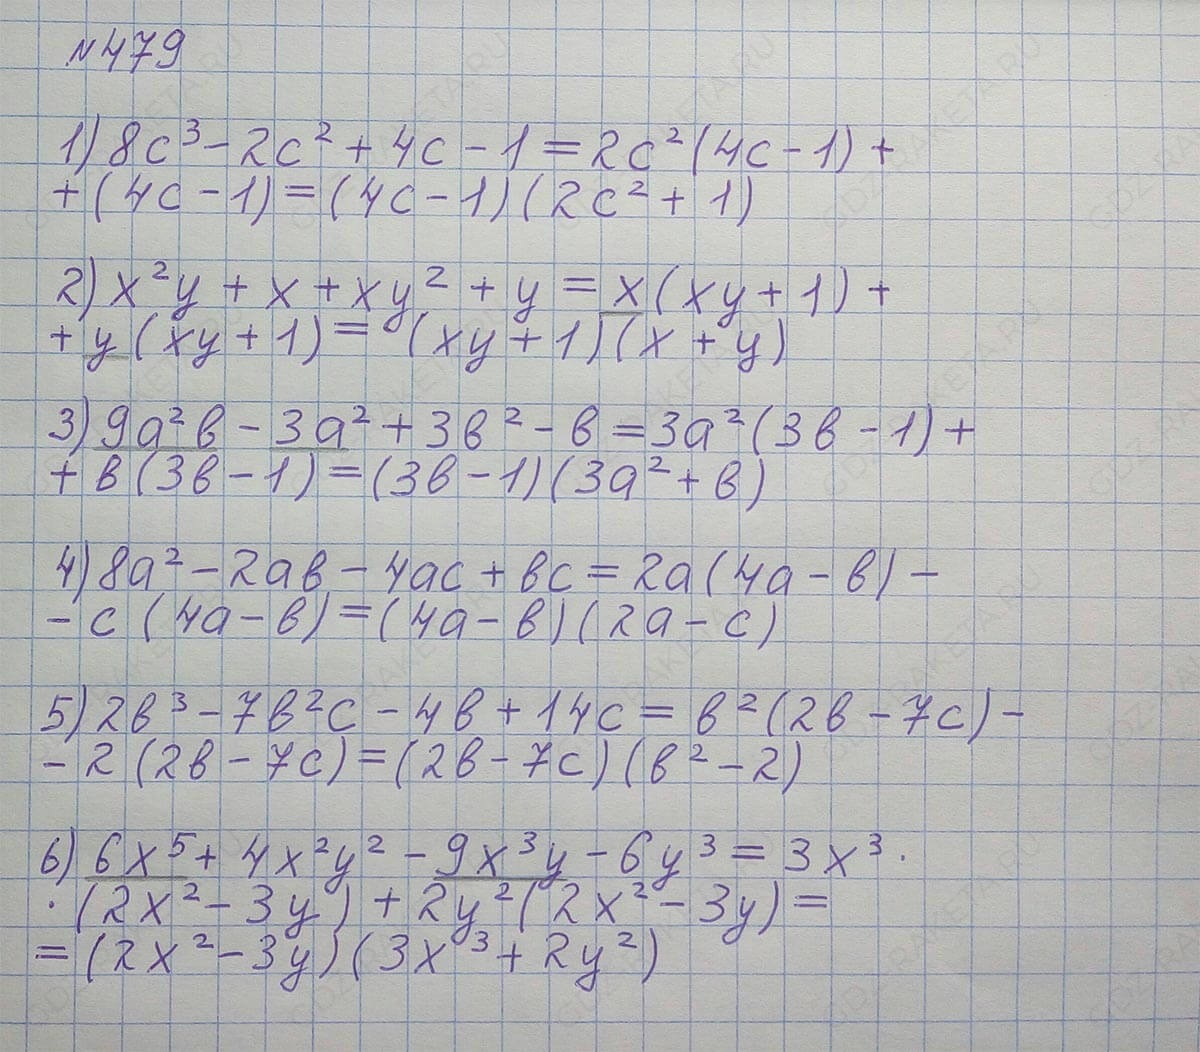 №479
1) 8c³ - 2c² + 4c - 1 = 2c²(4c - 1) +
+ (4c - 1) = (4c - 1)(2c² + 1)
2) x²y + x + xy² + y = x(xy + 1) +
+ y(xy + 1) = (xy + 1)(x + y)
3) 9a²в - 3a² + 3в² - в = 3a²(3в - 1) +
+ в(3в - 1) = (3в - 1)(3a² + в)
4) 8a² - 2aв - 4ac + вc = 2a(4a - в) -
- c(4a - в) = (4a - в)(2a - c)
5) 2в³ - 7в²c - 4в + 14c = в²(2в - 7c) -
- 2(2в - 7c) = (2в - 7c)(в² - 2)
6) 6x⁵ + 4x²y² - 9x³y - 6y³ = 3x³ ·
· (2x² - 3y) + 2y²(2x² - 3y) =
= (2x² - 3y)(3x³ + 2y²)
GDZ-RAKETA.RU